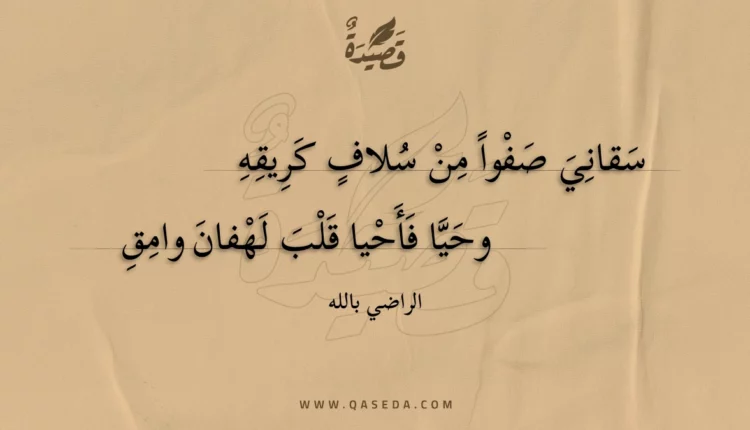 قَصِيْدَةٌ
سَقانِيَ صَفْواً مِنْ سُلافٍ كَرِيقِهِ
وحَيَّا فَأَحْيا قَلْبَ لَهْفانَ وامِقِ
الراضي بالله
WWW.QASEDA.COM